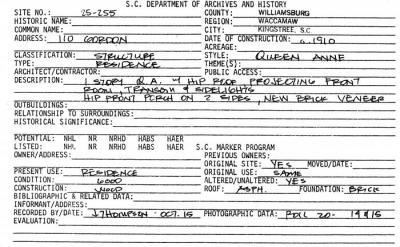 S.C. DEPARTMENT OF ARCHIVES AND HISTORY
SITE NO.: 25-255 COUNTY: WILLIAMSBURG
HISTORIC NAME: REGION: WACCAMAW
COMMON NAME: CITY: KINGSTREE, S.C.
ADDRESS: 110 GORDON DATE OF CONSTRUCTION: c.1910
ACREAGE:
CLASSIFICATION: STRUCTURE STYLE: QUEEN ANNE
TYPE: RESIDENCE THEME(S):
ARCHITECT/CONTRACTOR: PUBLIC ACCESS:
DESCRIPTION: 1 STORY Q.A. W HIP ROOF, PROJECTING FRONT
ROOM, TRANSOM & SIDELIGHTS
HIP FRONT PORCH ON 2 SIDES, NEW BRICK VENEER
OUTBUILDINGS:
RELATIONSHIP TO SURROUNDINGS:
HISTORICAL SIGNIFICANCE:
POTENTIAL: NHL NR NRHD HABS HAER
LISTED: NHL NR NRHD HABS HAER S.C. MARKER PROGRAM
OWNER/ADDRESS: PREVIOUS OWNERS:
ORIGINAL SITE: YES MOVED/DATE:
PRESENT USE: RESIDENCE ORIGINAL USE: SAME
CONDITION: GOOD ALTERED/UNALTERED: YES
CONSTRUCTION: WOOD ROOF: ASPH. FOUNDATION: BRICK
BIBLIOGRAPHIC & RELATED DATA:
INFORMANT/ADDRESS:
RECORDED BY/DATE: J THOMPSON OCT. 15 PHOTOGRAPHIC DATA: ROLL 20-
EVALUATION: